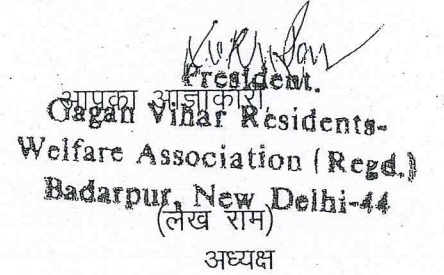 President.
आपका आज्ञाकारी
Gagan Vihar Residents-
Welfare Association (Regd.)
Badarpur, New Delhi-44
(लेख राम)
अध्यक्ष